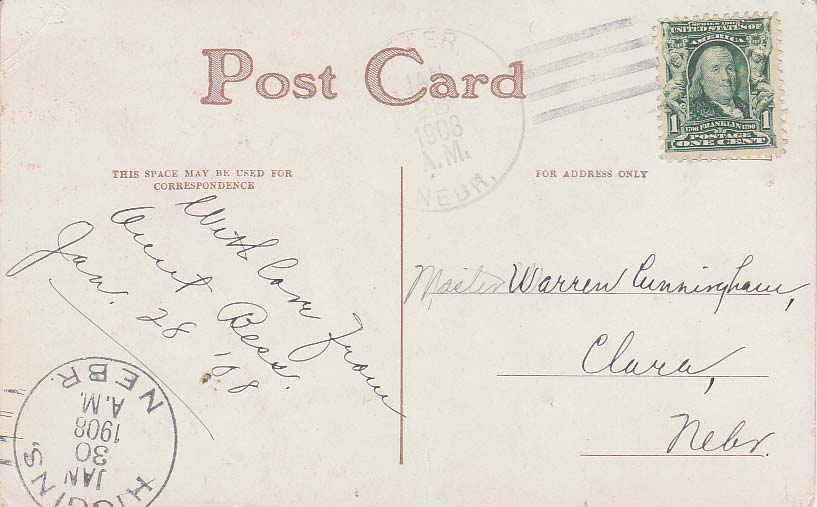 Post Card
JAN
28
1908
A.M.
NEBR.
SERIES 1902
UNITED STATES OF
AMERICA
1 1
1706 FRANKLIN 1790
POSTAGE
ONE CENT
THIS SPACE MAY BE USED FOR
CORRESPONDENCE
FOR ADDRESS ONLY
With love from
Aunt Bess.
Jan. 28 '08
Master Warren Cunningham,
Clara,
Nebr.
HIGGINS,
JAN
30
1908
A.M.
NEBR.